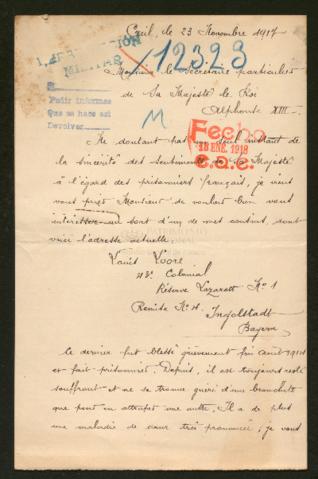 Creil, le 23 Novembre 1917
INSPECCION
MILITAR
12323
Monsieur le Secrétaire particulier
de Sa Majesté le Roi
Alphonse XIII.
Pedir informes
Que se hace así
Devolver
M
Fecho
18 ENE. 1918
Ne doutant pas un seul instant de
la sincérité des sentiments de Sa Majesté
à l'égard des prisonniers français, je viens
vous prier Monsieur de vouloir bien vous
intéresser au sort d'un de mes cousins, dont
voici l'adresse actuelle
PATRIMONIO
NACIONAL
Louis
Colonial
Réserve Lazarett No 1
Ingolstadt
Bayern
Ce dernier fut blessé grièvement fin août 1914
et fait prisonnier. Depuis, il est toujours resté
souffrant et ne se trouve guéri d'une bronchite
que pour en attraper une autre. Il a de plus
une maladie de cœur très prononcée; je vous